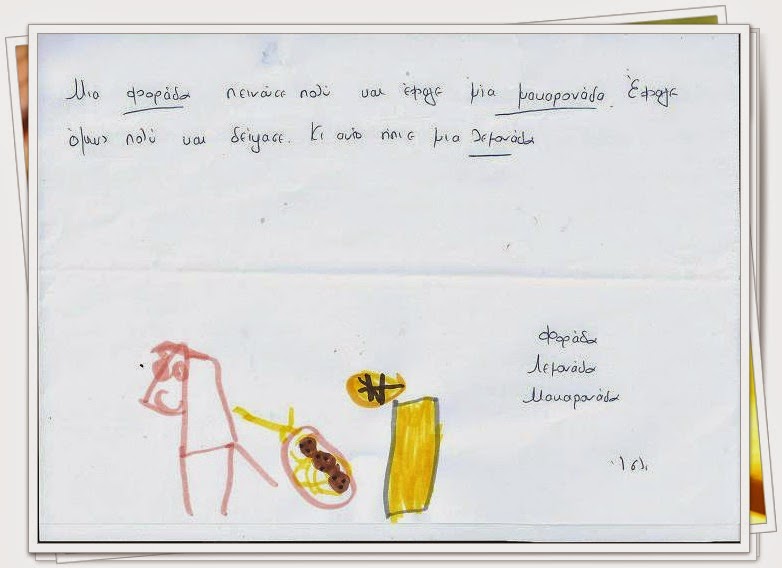 Μια φοράδα πεινάσε πολύ και έφαγε μία μακαρονάδα. Έφαγε
όμως πολύ και δείψασε. Κι αυτό ήπιε μια λεμονάδα
Φοράδα
Λεμονάδα
Μακαρονάδα